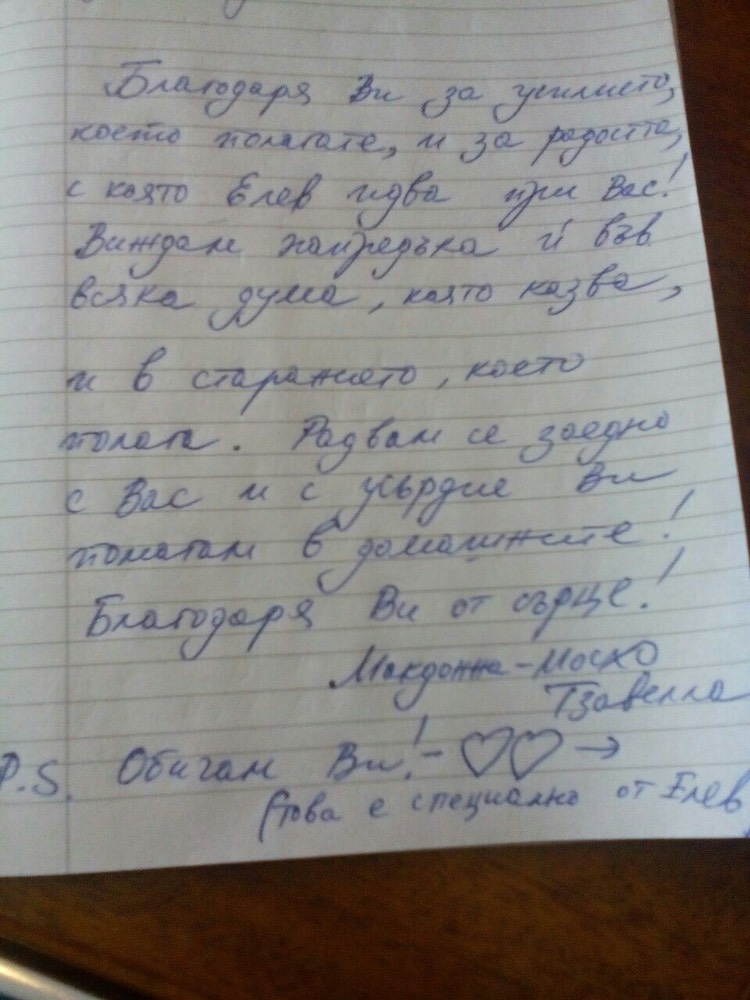 Благодаря Ви за усилието,
което полагате, и за радостта,
с която Елев идва при Вас!
Виждам напредъка ѝ във
всяка дума, която казва,
и в старанието, което
полага. Радвам се заедно
с Вас и с усърдие Ви
помагам в домашните!
Благодаря Ви от сърце!
Макдонна-Мосхо
Тзавелла
P.S. Обичам Ви! - ♡♡ →
(това е специално от Елев